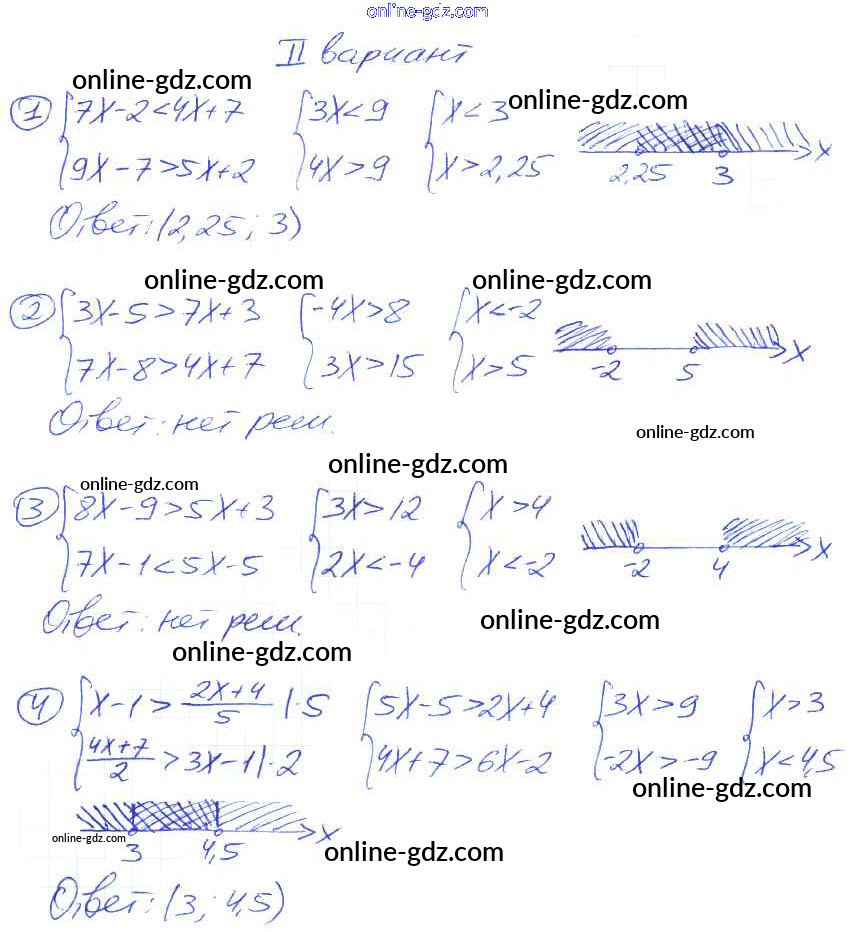 online-gdz.com
II вариант
online-gdz.com
online-gdz.com
1 {7x-2<4x+7 {3x<9 {x<3
9x-7>5x+2 4x>9 x>2,25 2,25 3 x
Ответ: (2,25; 3)
online-gdz.com online-gdz.com
2 {3x-5>7x+3 {-4x>8 {x<-2
7x-8>4x+7 3x>15 x>5 -2 5 x
Ответ: нет реш.
online-gdz.com
online-gdz.com
online-gdz.com
3 {8x-9>5x+3 {3x>12 {x>4
7x-1<5x-5 2x<-4 x<-2 -2 4 x
Ответ: нет реш.
online-gdz.com
online-gdz.com
4 {x-1> (2x+4)/5 |·5 {5x-5>2x+4 {3x>9 {x>3
(4x+7)/2 >3x-1|·2 4x+7>6x-2 -2x>-9 x<4,5
online-gdz.com
online-gdz.com 3 4,5 x
online-gdz.com
Ответ: (3; 4,5)